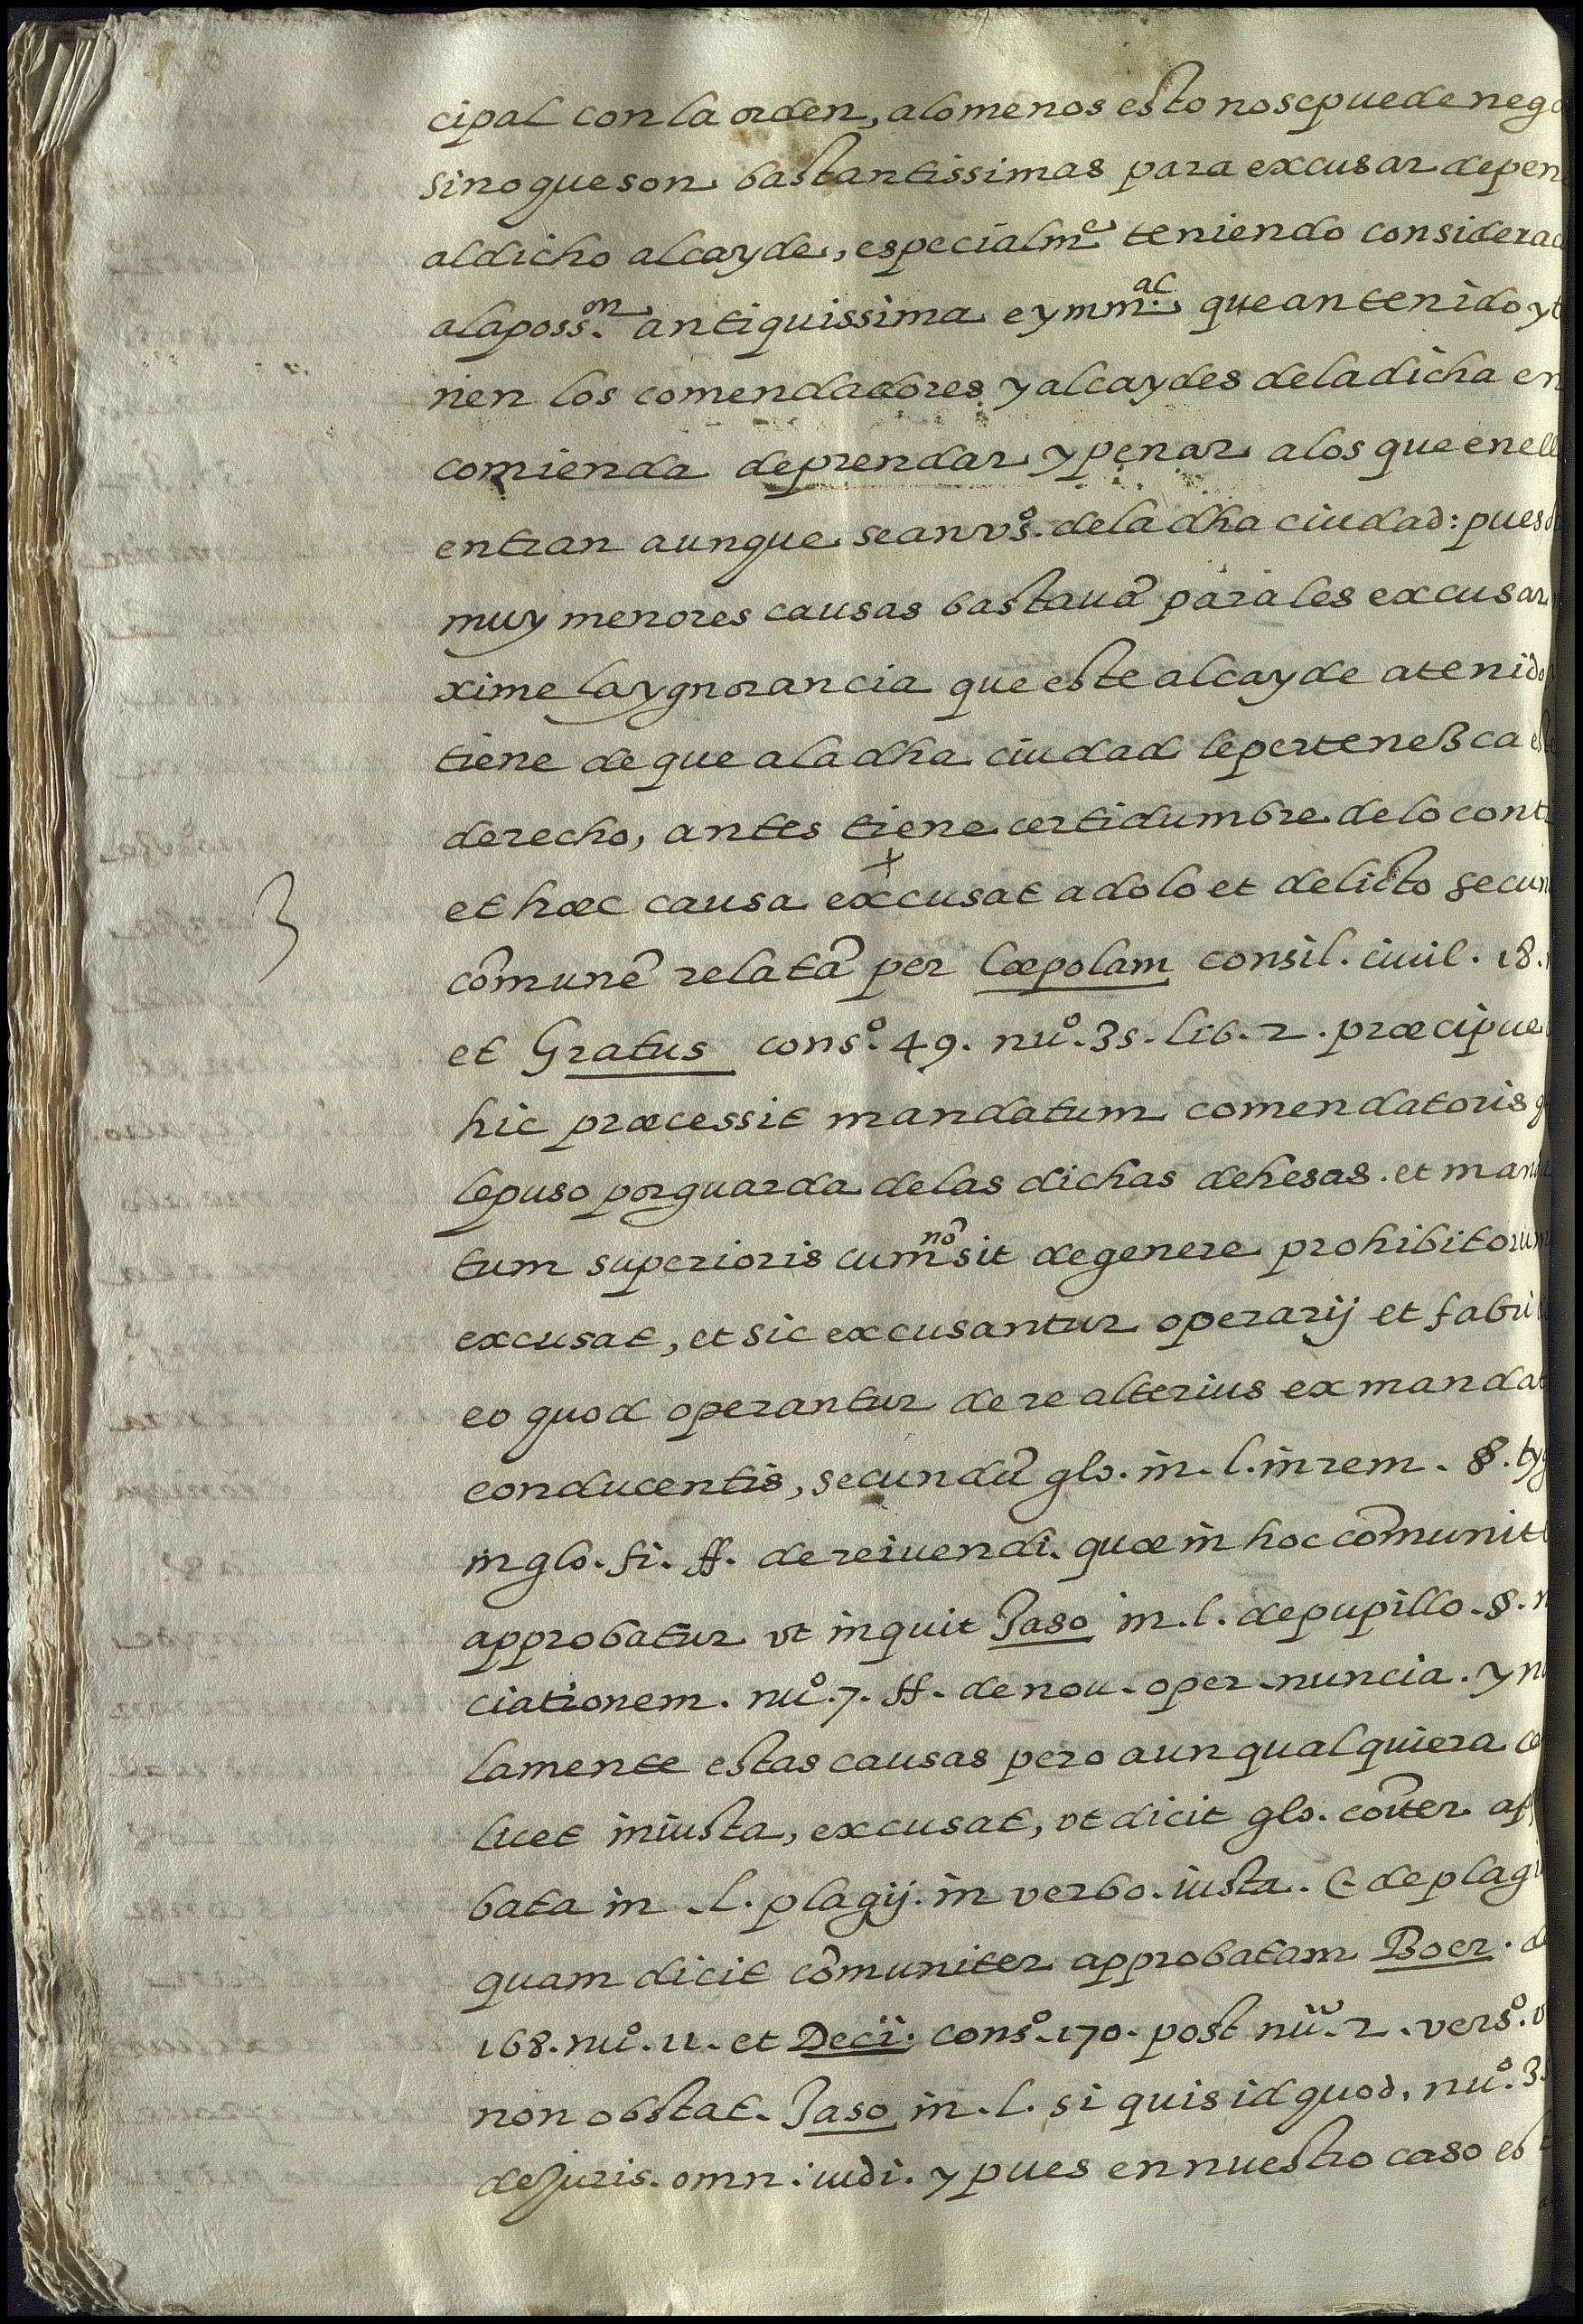 cipal con la orden, alomenos esto nosepuede nega
sinoqueson bastantissimas para excusar depen
aldicho alcayde, especialmᵉ teniendo considerac
alaposs.ᵒⁿ antiquissima eymm.ᵃˡ quean tenido yt
nen los comendadores y alcaydes deladicha en
comienda deprendar y penar alos que enell
entran aunque seanvº̃s. dela dha ciudad: pues
muy menores causas bastauã para les excusar
xime laygnorancia que este alcayde atenido
tiene de que aladha ciudad lepertenezca est
derecho, antes tiene certidumbre delo cont
3
et hæc causa excusat adolo et delicto secun
cõmunẽ relatã per Cæpolam consil. ciuil. 18.
et Gratus consº. 49. nuº. 35. lib. 2. præcipue
hic præcessit mandatum comendatoris q
lepuso porguarda delas dichas dehesas. et manda
tum superioris cum nõ sit degenere prohibitorum
excusat, et sic excusantur operarij et fabri
eo quod operantur dere alterius ex mandat
conducentis, secundũ glo. in. l. in rem. §. tyg
in glo. fi. ff. dereiuendi. quæ in hoc cõmunit
approbatur vt inquit Jaso in. l. depupillo. §. n
ciationem. nuº. 7. ff. denou. oper. nuncia. y no
lamente estas causas pero aun qualquiera ca
licet iniusta, excusat, vt dicit glo. cõiter ap
bata in. l. plagij. in verbo. iusta. C. de plagi
quam dicit cõmuniter approbatam Boer. d
168. nuº. 11. et Decĩ. consº. 170. post nuº. 2. versº. v
non obstat. Jaso in. l. si quis id quod. nuº. 3
dejuris. omn. iudi. y pues ennuestro caso est